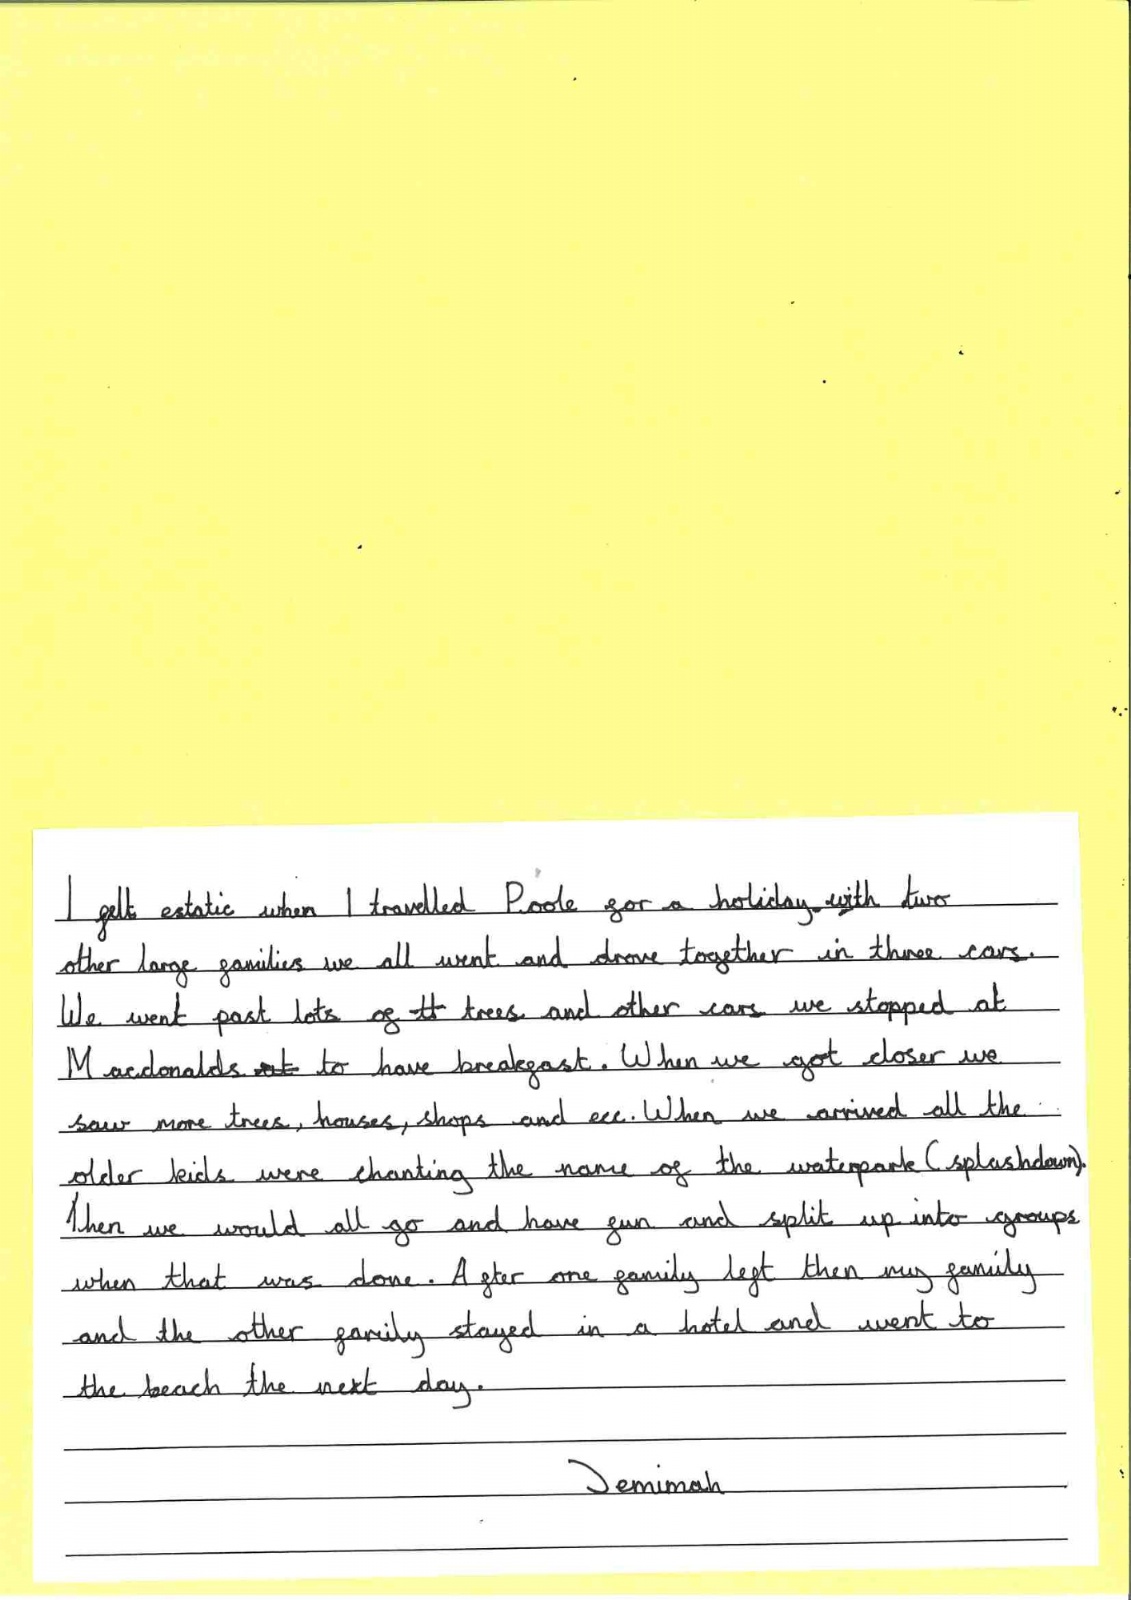 I felt estatic when I travelled Poole for a holiday with two
other large families we all went and drove together in three cars.
We went past lots of tt trees and other cars we stopped at
Macdonalds at to have breakfast. When we got closer we
saw more trees, houses, shops and ecc. When we arrived all the
older kids were chanting the name of the waterpark (splashdown).
Then we would all go and have fun and split up into groups
when that was done. After one family left then my family
and the other family stayed in a hotel and went to
the beach the next day.
Jemimah